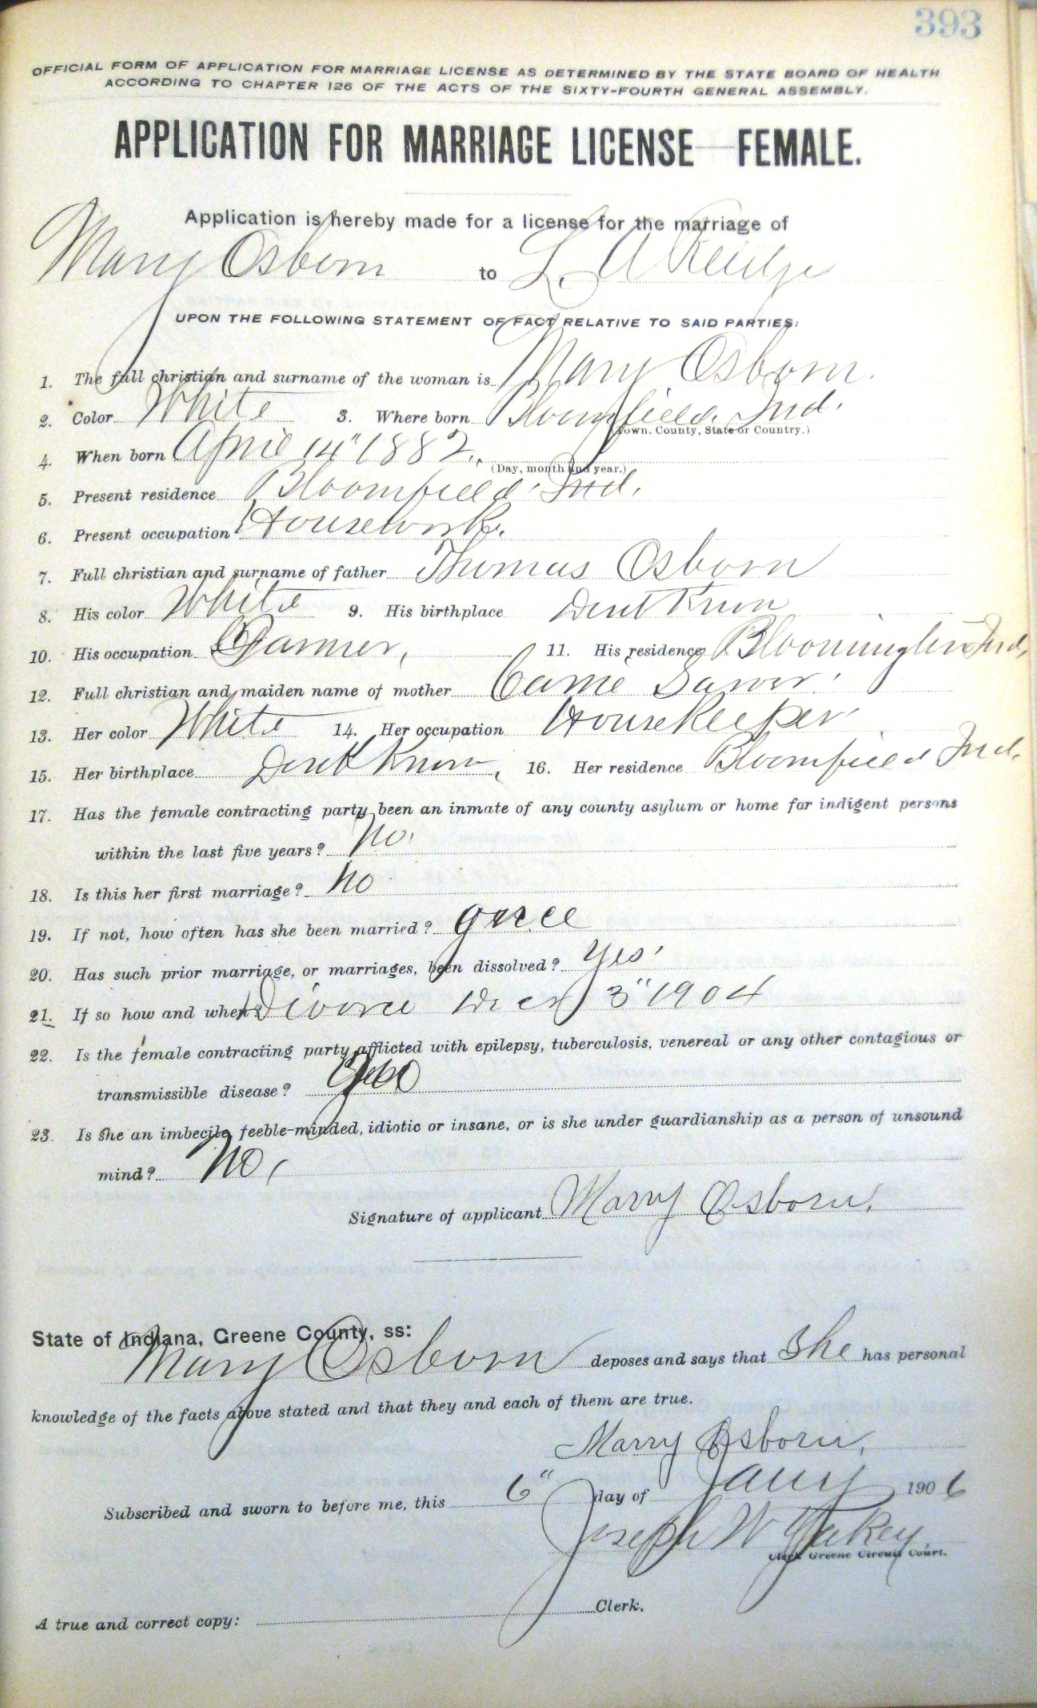 393
OFFICIAL FORM OF APPLICATION FOR MARRIAGE LICENSE AS DETERMINED BY THE STATE BOARD OF HEALTH
ACCORDING TO CHAPTER 126 OF THE ACTS OF THE SIXTY-FOURTH GENERAL ASSEMBLY.
APPLICATION FOR MARRIAGE LICENSE—FEMALE.
Application is hereby made for a license for the marriage of
Mary Osborn to L. A
UPON THE FOLLOWING STATEMENT OF FACT RELATIVE TO SAID PARTIES:
1. The full christian and surname of the woman is Mary Osborn.
2. Color White 3. Where born Bloomfield. Ind.
(Town. County, State or Country.)
4. When born April 14" 1882.
(Day, month and year.)
5. Present residence Bloomfield. Ind.
6. Present occupation Housework.
7. Full christian and surname of father Thomas Osborn
8. His color White 9. His birthplace Dont Know
10. His occupation Farmer, 11. His residence Bloomington Ind,
12. Full christian and maiden name of mother
13. Her color White 14. Her occupation Housekeeper
15. Her birthplace Dont Know, 16. Her residence Bloomfield Ind.
17. Has the female contracting party been an inmate of any county asylum or home for indigent persons
within the last five years? No.
18. Is this her first marriage? No
19. If not, how often has she been married?
20. Has such prior marriage, or marriages, been dissolved? Yes
21. If so how and when? Divorce 3" 1904
22. Is the female contracting party afflicted with epilepsy, tuberculosis, venereal or any other contagious or
transmissible disease?
23. Is she an imbecile, feeble-minded, idiotic or insane, or is she under guardianship as a person of unsound
mind? No,
Signature of applicant Marry Osborn.
State of Indiana, Greene County, ss:
Mary Osborn deposes and says that She has personal
knowledge of the facts above stated and that they and each of them are true.
Marry Osborn.
Subscribed and sworn to before me, this 6" day of Jany 1906
Joseph W Yakey
Clerk Greene Circuit Court.
A true and correct copy: Clerk.